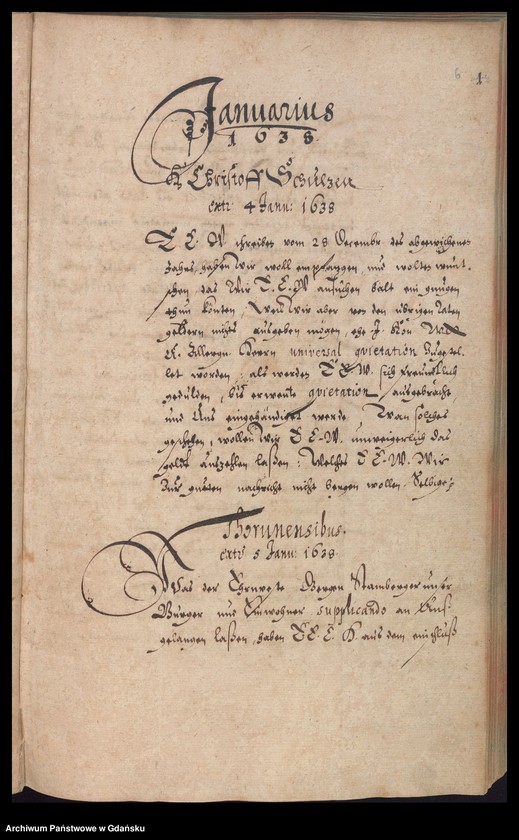 6 1
Januarius
1638.
H Christoff Schulzen
extr 4 Janu: 1638
E. E. W schreiben vom 28 Decembr. des abgewichenen
Jahres, haben wir woll empfangen, und wolten wünt-
schen, das Wir E. E. W ansuchen balt ein gnügen
thun könten, Weil Wir aber von den übrigen Zaten
geldern nichts ausgeben mögen, ehe J. Kön May
U. Allergn. Herrn universal qvietation
let worden; als werden E E. W. sich freundtlich
gedulden, bis erwente qvietation ausgebracht
und Uns eingehändiget werde. Wan solches
geschehen, wollen Wir E E. W. unweigerlich das
geldt auszehlen laßen: Welches E E. W. Wir
zur gutten nachricht nicht bergen wollen.
Thorunensibus.
extr 5 Janu: 1638.
Was der Ehrnveste Georgen Stamberger unser
Bürger und Einwohner supplicando an Uns
gelangen laßen, haben E E. E. H. aus dem einschluß
Archiwum Państwowe w Gdańsku